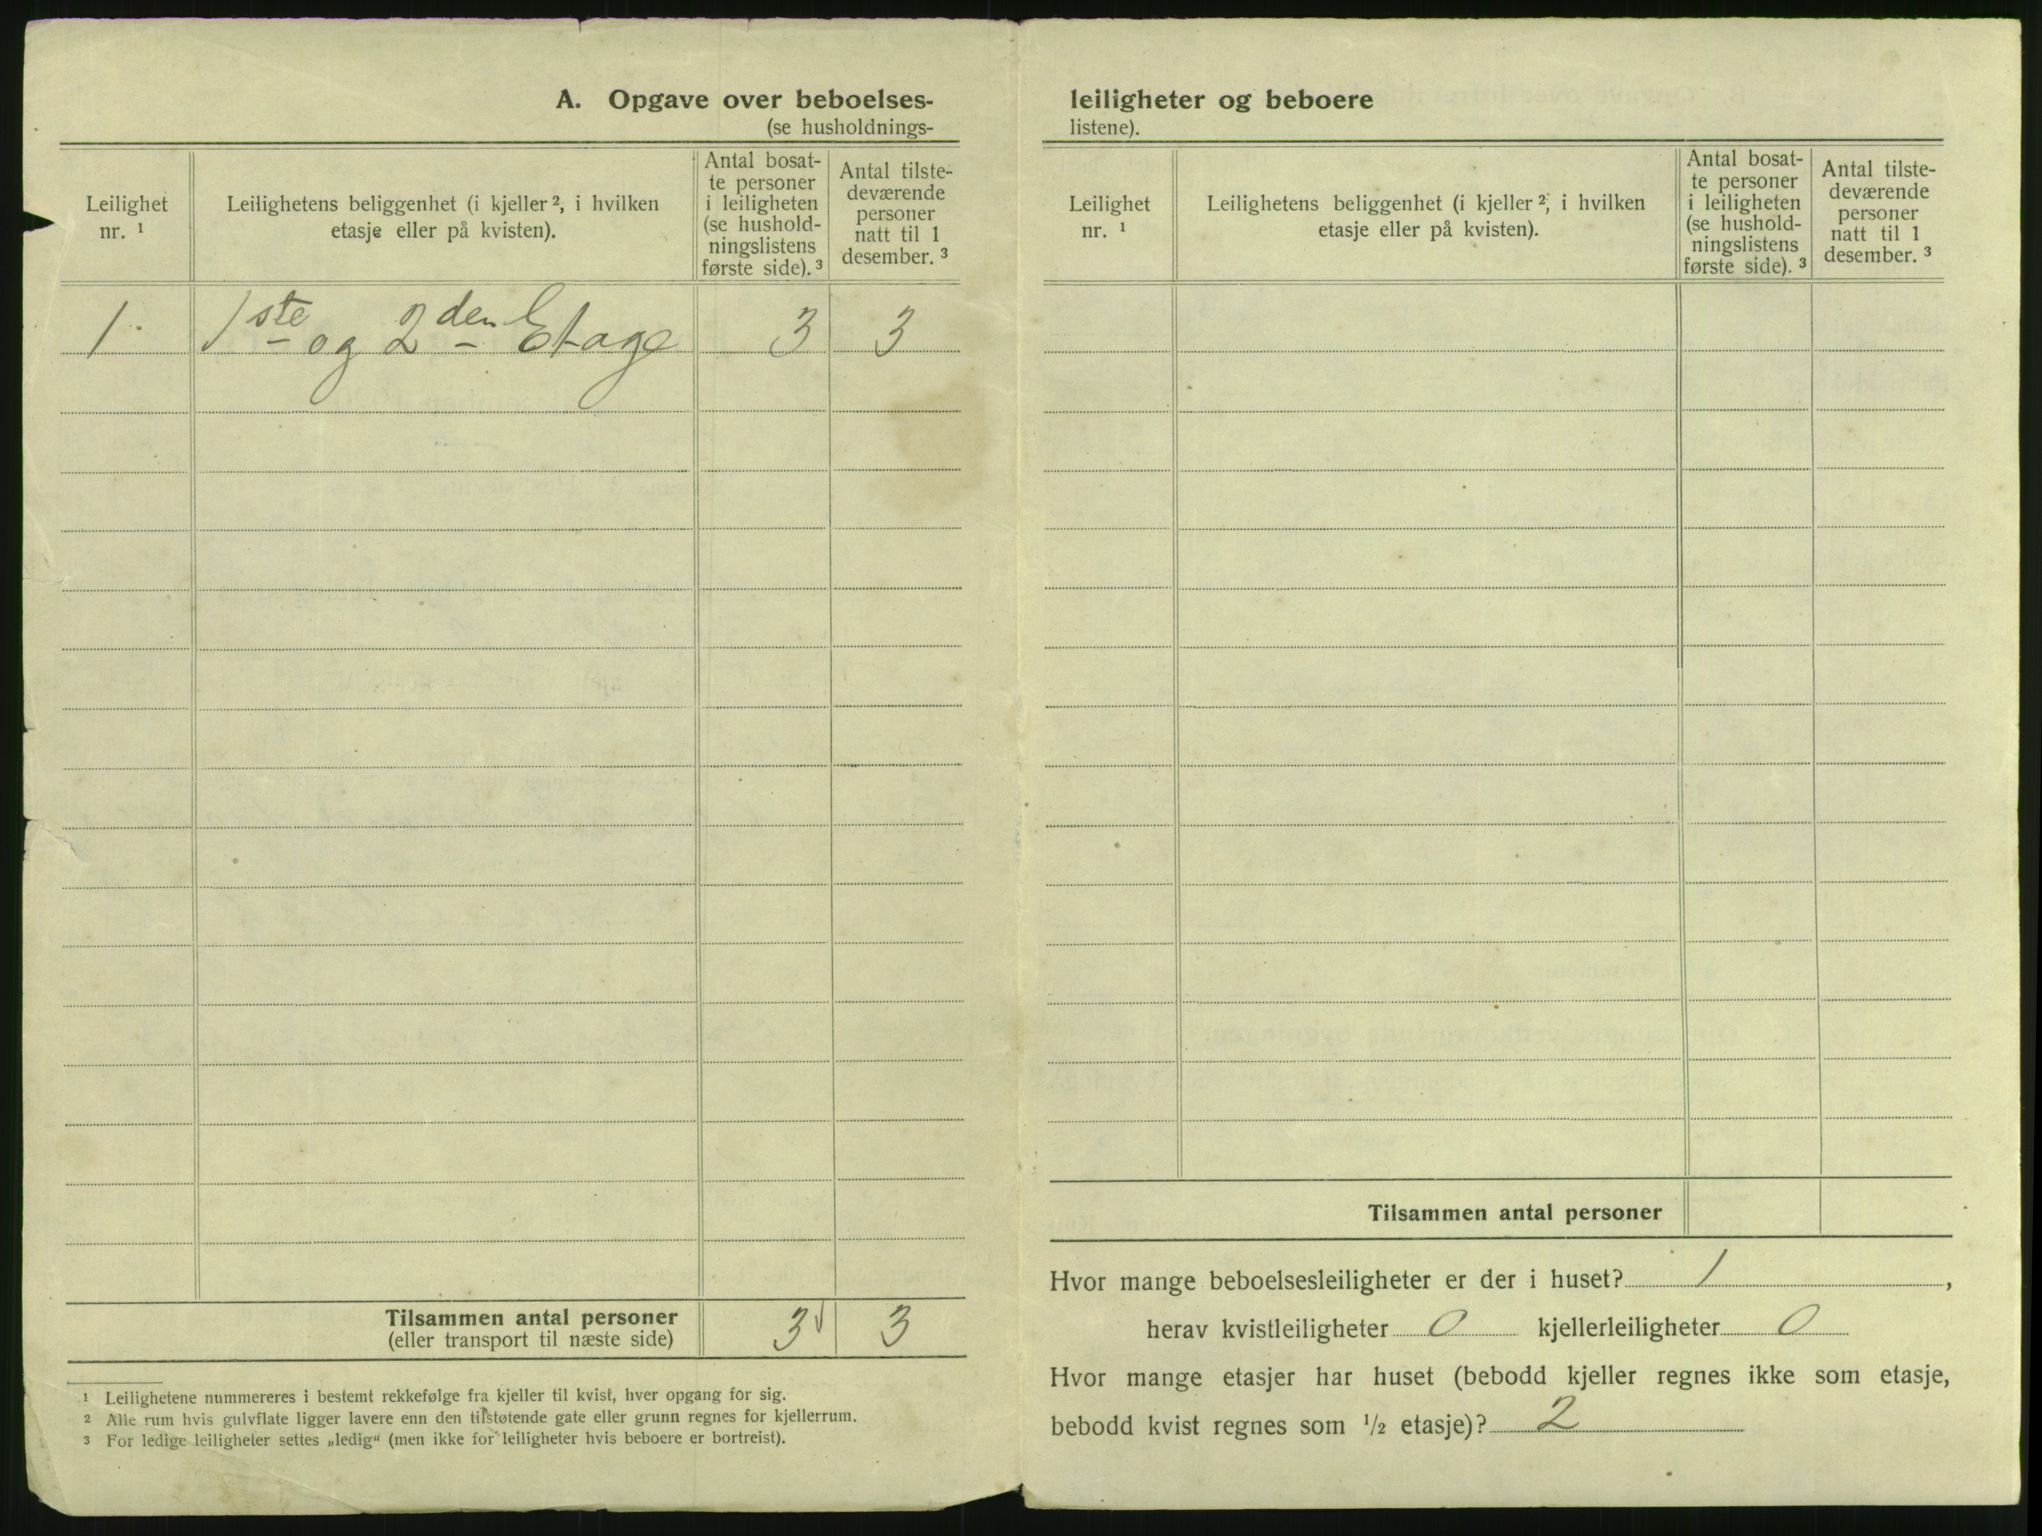 A. Opgave over beboelses-
(se husholdnings-
Leilighet
nr. ¹
Leilighetens beliggenhet (i kjeller ², i hvilken
etasje eller på kvisten).
Antal bosat-
te personer
i leiligheten
(se hushold-
ningslistens
første side). ³
Antal tilste-
deværende
personer
natt til 1
desember. ³
1. 1ste og 2den Etage 3 3
Tilsammen antal personer 3 3
(eller transport til næste side)
¹ Leilighetene nummereres i bestemt rekkefølge fra kjeller til kvist, hver opgang for sig.
² Alle rum hvis gulvflate ligger lavere enn den tilstøtende gate eller grunn regnes for kjellerrum.
³ For ledige leiligheter settes „ledig“ (men ikke for leiligheter hvis beboere er bortreist).
leiligheter og beboere
listene).
Leilighet
nr. ¹
Leilighetens beliggenhet (i kjeller ², i hvilken
etasje eller på kvisten).
Antal bosat-
te personer
i leiligheten
(se hushold-
ningslistens
første side). ³
Antal tilste-
deværende
personer
natt til 1
desember. ³
Tilsammen antal personer
Hvor mange beboelsesleiligheter er der i huset? 1,
herav kvistleiligheter 0 kjellerleiligheter 0
Hvor mange etasjer har huset (bebodd kjeller regnes ikke som etasje,
bebodd kvist regnes som ½ etasje)? 2